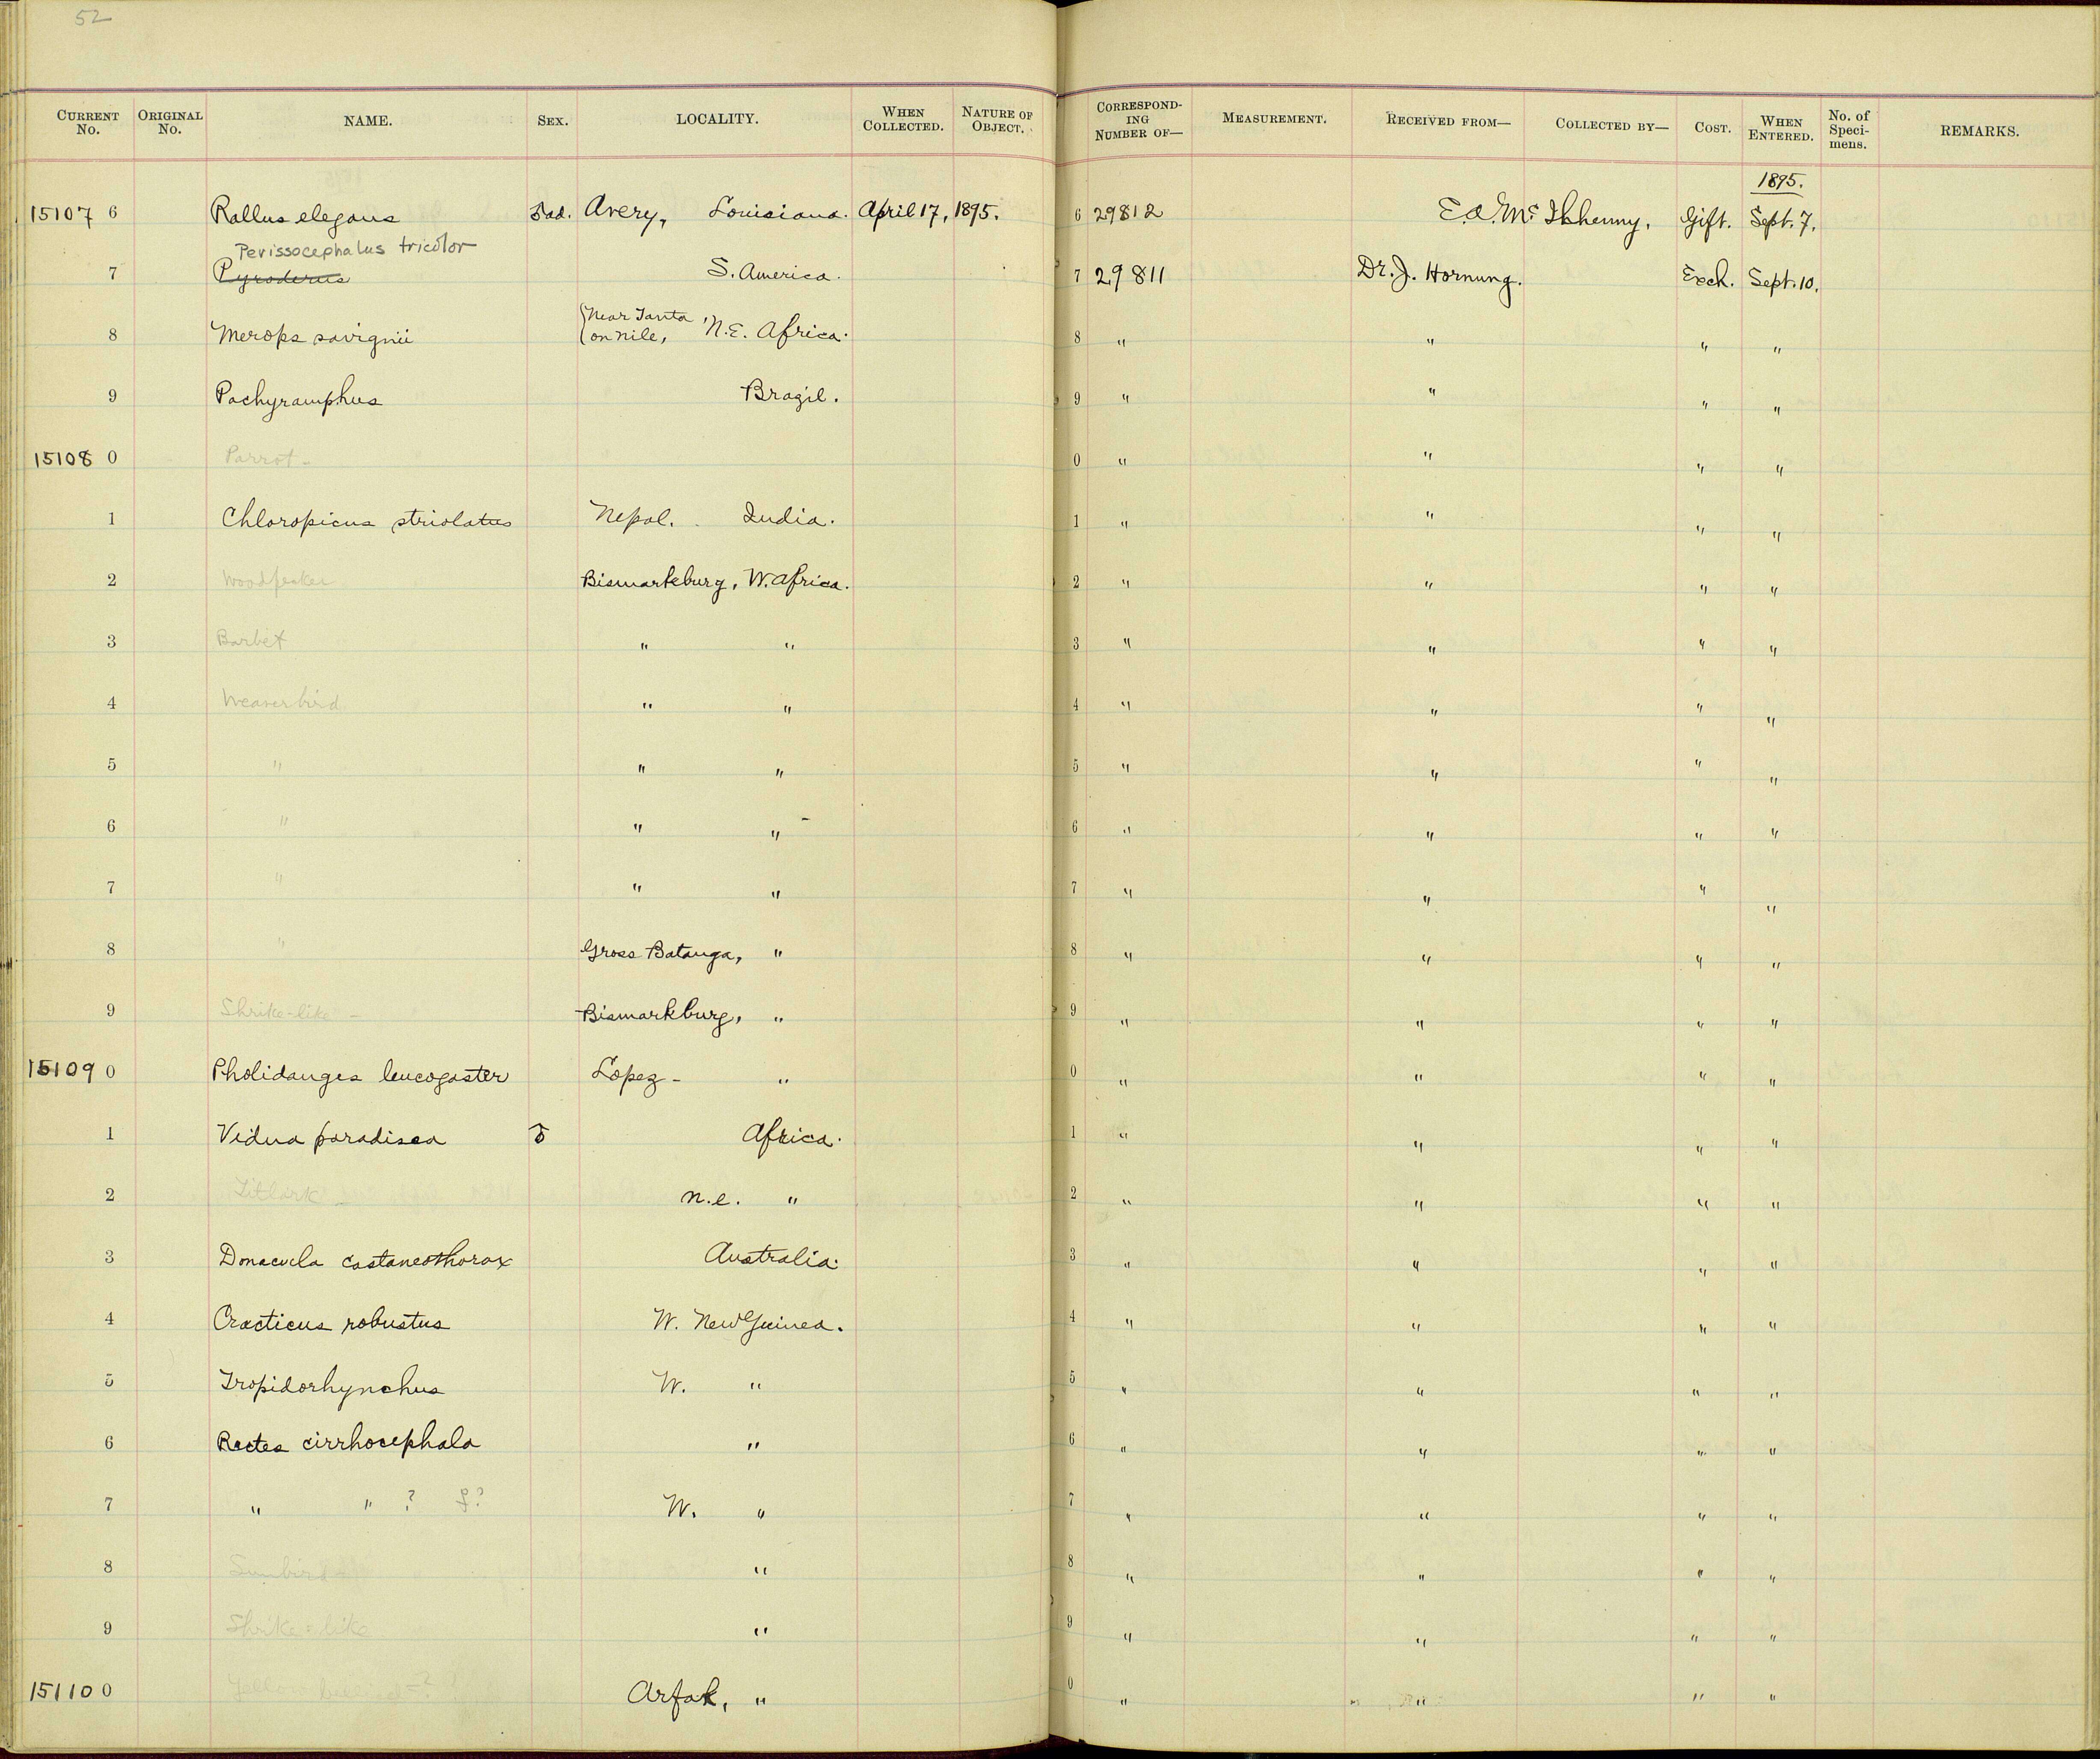 52
CURRENT No. ORIGINAL No. NAME. SEX. LOCALITY. WHEN COLLECTED. NATURE OF OBJECT. CORRESPONDING NUMBER OF— MEASUREMENT. RECEIVED FROM— COLLECTED BY— COST. WHEN ENTERED. No. of Specimens. REMARKS.
1895.
15107 6 Rallus elegans ad. Avery, Louisiana. April 17, 1895. 6 29812 E.A. McIlhenny. Gift. Sept. 7.
Perissocephalus tricolor
7 Pyroderus S. America. 7 29811 Dr. J. Hornung. Exch. Sept. 10.
8 Merops savignii Near Tanta on Nile, N.E. Africa. 8 " " " "
9 Pachyramphus Brazil. 9 " " " "
15108 0 Parrot - 0 " " " "
1 Chloropicus striolatus Nepal. India. 1 " " " "
2 Woodpecker Bismarkburg, W. Africa. 2 " " " "
3 Barbet " " 3 " " " "
4 Weaverbird " " 4 " " " "
5 " " " 5 " " " "
6 " " " 6 " " " "
7 " " " 7 " " " "
8 " Gross Batanga, " 8 " " " "
9 Shrike-like - Bismarkburg, " 9 " " " "
15109 0 Pholidauges leucogaster Lopez - " 0 " " " "
1 Vidua paradisea ♂ Africa. 1 " " " "
2 Titlark - n.e. " 2 " " " "
3 Donacula castaneothorax Australia. 3 " " " "
4 Cracticus robustus W. New Guinea. 4 " " " "
5 Tropidorhynchus W. " 5 " " " "
6 Rectes cirrhocephala " 6 " " " "
7 " " ? ♀? W. " 7 " " " "
8 Sunbird " 8 " " " "
9 Shrike-like " 9 " " " "
15110 0 Arfak, " 0 " " " "